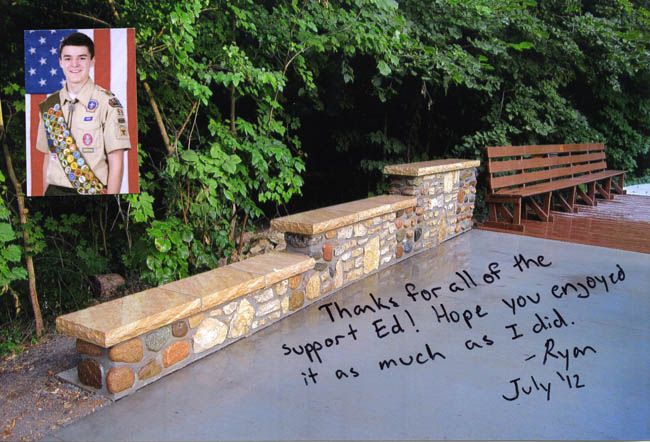 Thanks for all of the
support Ed! Hope you enjoyed
it as much as I did.
- Ryan
July '12